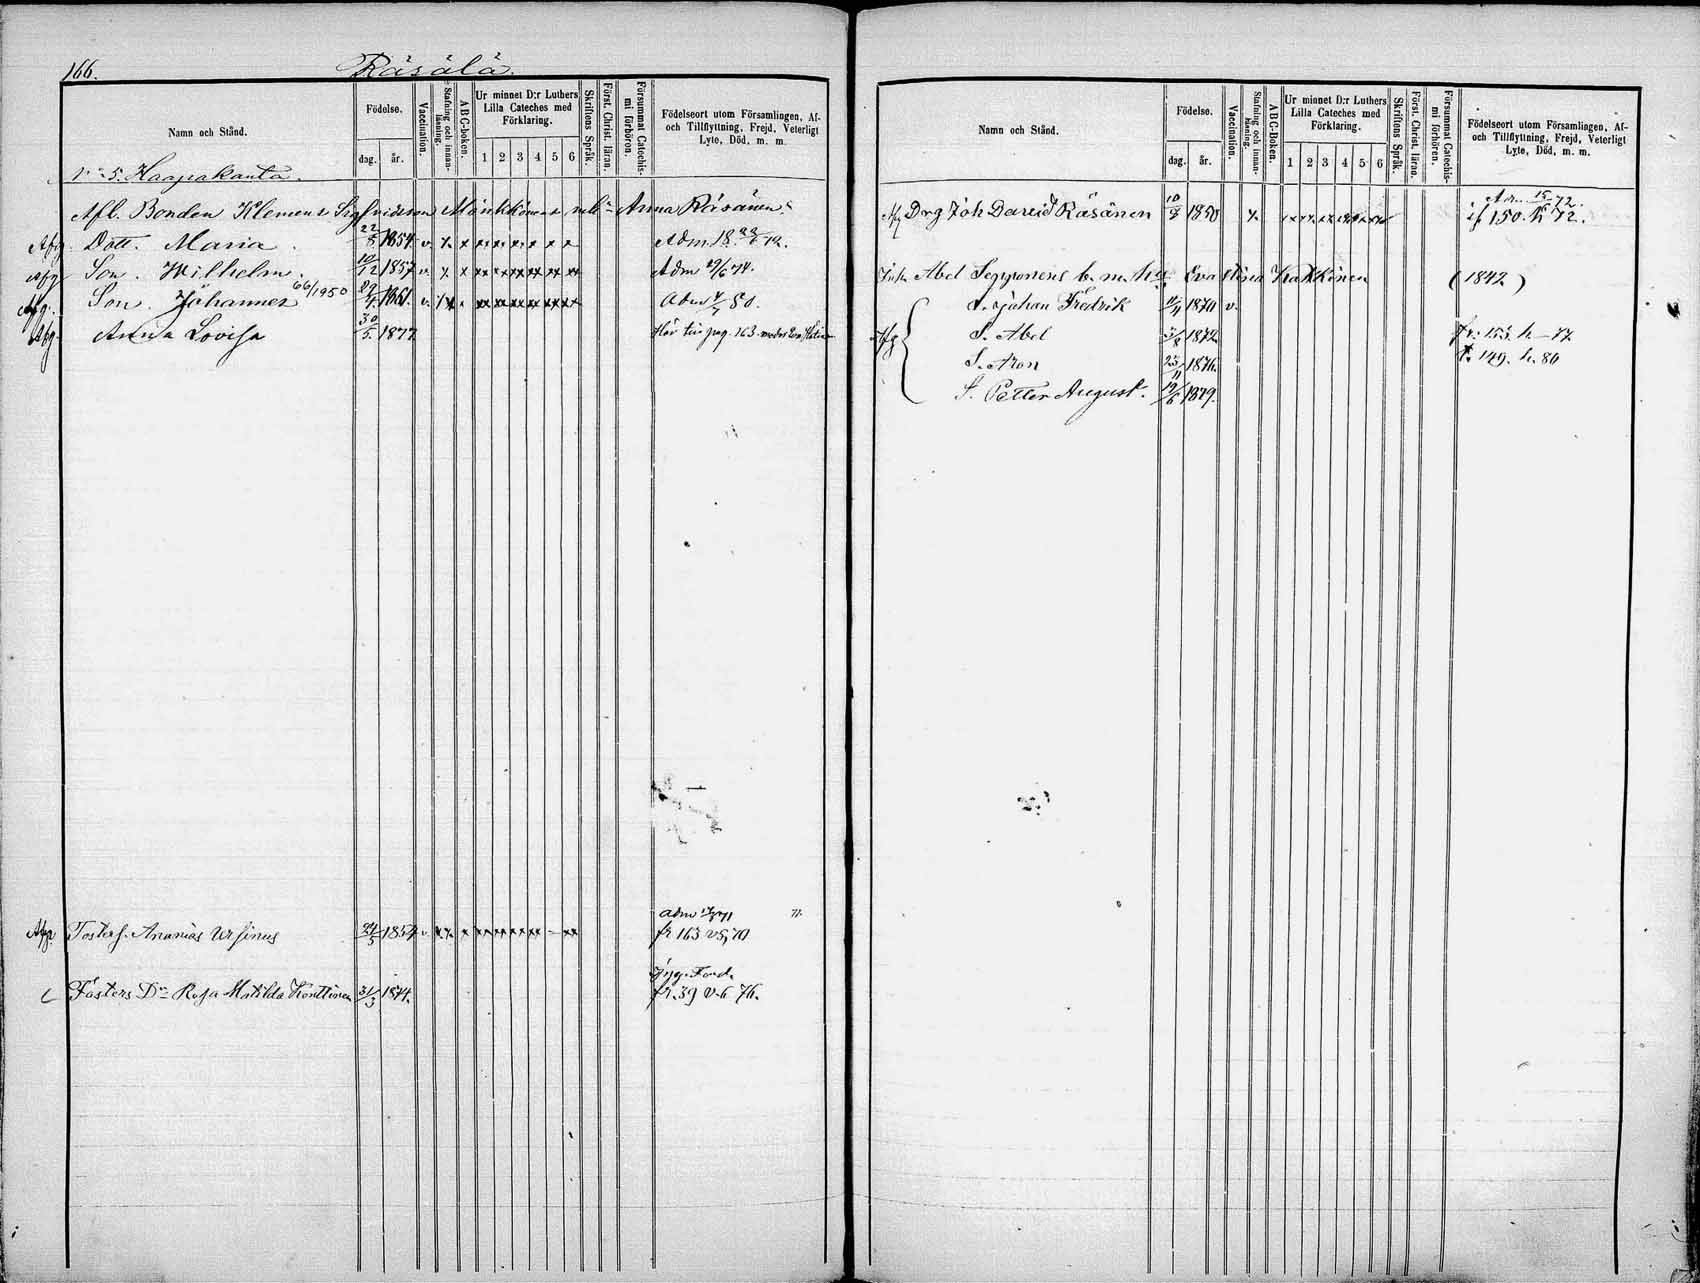 166.
Räsälä.
Namn och Stånd.
Födelse.
dag. år.
Vaccination.
Stafning och innan-läsning.
ABC-boken.
Ur minnet D:r Luthers Lilla Cateches med Förklaring.
1 2 3 4 5 6
Skriftens Språk.
Först. Christ. läran.
Försummat Catechis-mi förhören.
Födelseort utom Församlingen, Af- och Tillflyttning, Frejd, Veterligt Lyte, Död, m. m.
No 5. Haapakanta.
Afl. Bonden Klemens Mönkkönens Anna Räsänen
Afg. Dott. Maria. 22/8 1854 v. Adm. 18 72.
Afg Son. Wilhelm. 10/12 1857 v. Adm 19/6 74.
Afg. Son. Johannes 66/1950 29/4 1861. v. Adm 80.
Afg. Anna Lovisa 30/5. 1877. Här fin pag. 163
Afg. Fosters. Ananias Ursinus 24/5 1854 v. adm 71
fr 163 70
Fosters Dr Rosa Matilda Konttinen 31/3 1874.
fr. 39 v. 6 76.
Namn och Stånd.
Födelse.
dag. år.
Vaccination.
Stafning och innan-läsning.
ABC-Boken.
Ur minnet D:r Luthers Lilla Cateches med Förklaring.
1 2 3 4 5 6
Skriftens Språk.
Först. Christ. läran.
Försummat Catechis-mi förhören.
Födelseort utom Församlingen, Af- och Tillflyttning, Frejd, Veterligt Lyte, Död, m. m.
Drg Joh David Räsänen 1850 72.
150 72.
Inh. Abel Sepponens Eva Stina Kakkinen (1842)
S. Johan Fredrik 11/4 1870 v.
Afg S. Abel 3/8 1872. fr. 153. h - 77
S. Aron 23/11 1876. t. 149. h. 80
S. Petter August. 19/6 1879.